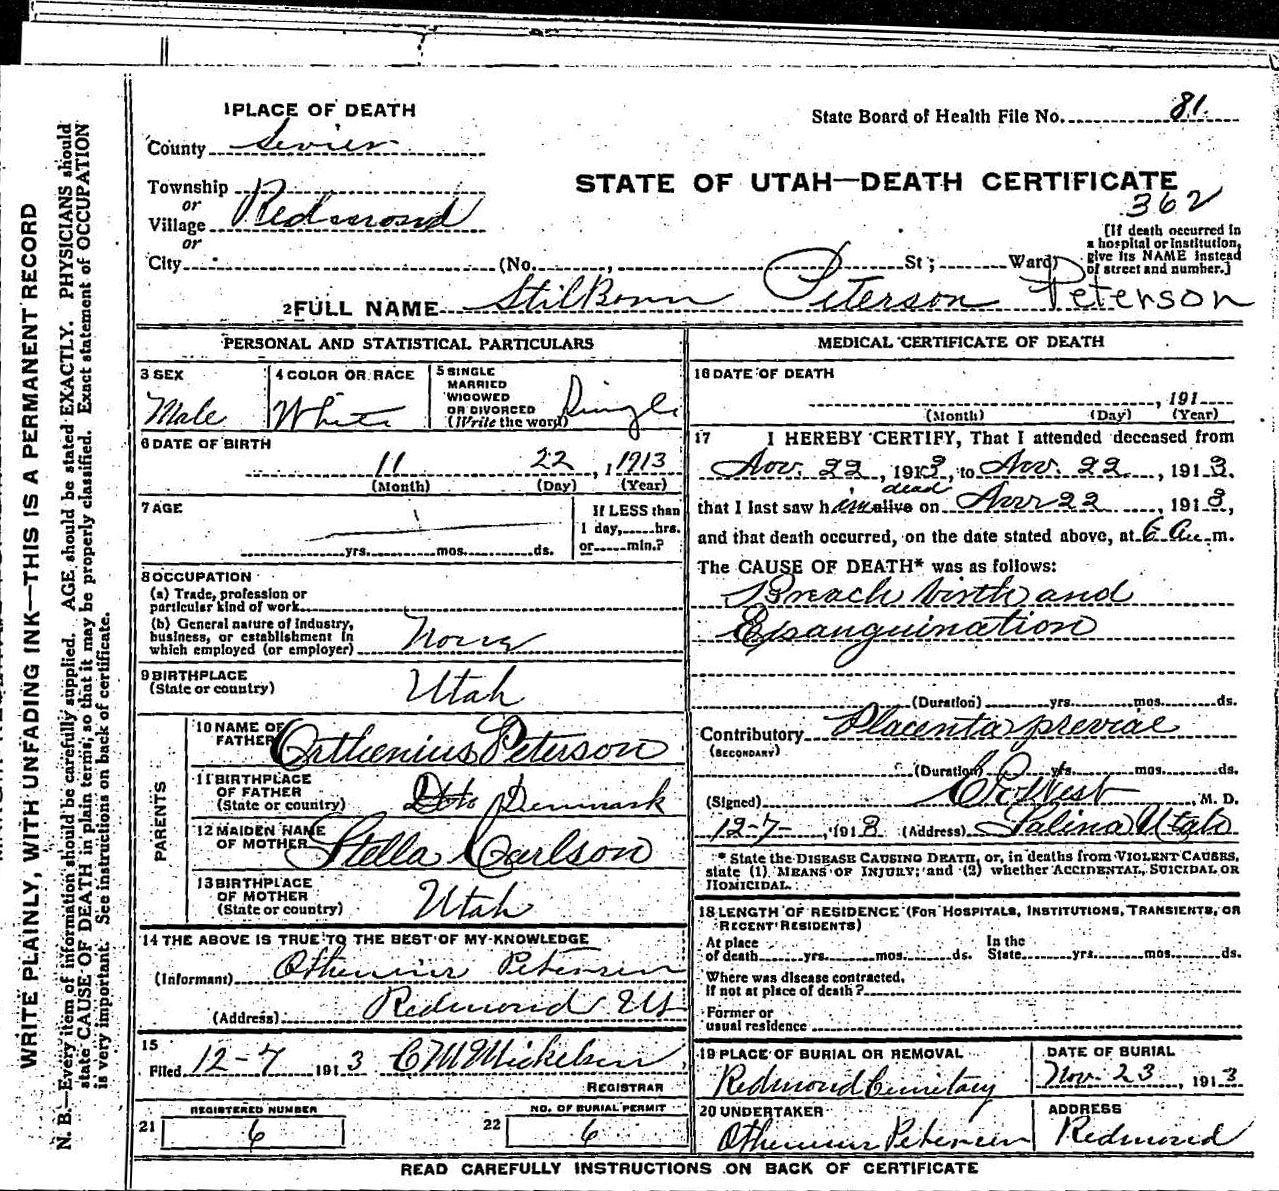 WRITE PLAINLY, WITH UNFADING INK—THIS IS A PERMANENT RECORD
N. B.—Every item of information should be carefully supplied. AGE should be stated EXACTLY. PHYSICIANS should
state CAUSE OF DEATH in plain terms, so that it may be properly classified. Exact statement of OCCUPATION
is very important. See instructions on back of certificate.
1 PLACE OF DEATH
State Board of Health File No. 81
County Sevier
STATE OF UTAH—DEATH CERTIFICATE
362
Township
or
Village Redmond
or
City (No. St; Ward)
[If death occurred in
a hospital or institution,
give its NAME instead
of street and number.]
2 FULL NAME StilBorn Peterson Peterson
PERSONAL AND STATISTICAL PARTICULARS
3 SEX
Male
4 COLOR OR RACE
White
5 SINGLE
MARRIED
WIDOWED
OR DIVORCED
(Write the word)
Single
6 DATE OF BIRTH
11 22, 1913
(Month) (Day) (Year)
7 AGE
yrs. mos. ds.
If LESS than
1 day, hrs.
or min.?
8 OCCUPATION
(a) Trade, profession or
particular kind of work
(b) General nature of industry,
business, or establishment in
which employed (or employer)
9 BIRTHPLACE
(State or country)
Utah
PARENTS
10 NAME OF
FATHER
Orthenius Peterson
11 BIRTHPLACE
OF FATHER
(State or country)
Denmark
12 MAIDEN NAME
OF MOTHER
Stella Carlson
13 BIRTHPLACE
OF MOTHER
(State or country)
Utah
14 THE ABOVE IS TRUE TO THE BEST OF MY KNOWLEDGE
(Informant) Othenius Petersen
(Address) Redmond Ut
15
Filed 12-7 1913 C M Mickelsen
REGISTRAR
REGISTERED NUMBER
21 6
NO. OF BURIAL PERMIT
22 6
MEDICAL CERTIFICATE OF DEATH
16 DATE OF DEATH
, 191
(Month) (Day) (Year)
17 I HEREBY CERTIFY, That I attended deceased from
Nov. 22, 1913, to Nov. 22, 1913.
dead
that I last saw him alive on Nov 22, 1913,
and that death occurred, on the date stated above, at 6 a.m.
The CAUSE OF DEATH* was as follows:
Breach birth and
Exsanguination
(Duration) yrs. mos. ds.
Contributory Placenta previae
(SECONDARY)
(Duration) yrs. mos. ds.
(Signed) West, M. D.
12-7-, 1913 (Address) Salina Utah
* State the DISEASE CAUSING DEATH, or, in deaths from VIOLENT CAUSES,
state (1) MEANS OF INJURY; and (2) whether ACCIDENTAL, SUICIDAL OR
HOMICIDAL.
18 LENGTH OF RESIDENCE (FOR HOSPITALS, INSTITUTIONS, TRANSIENTS, OR
RECENT RESIDENTS)
At place
of death yrs. mos. ds.
In the
State yrs. mos. ds.
Where was disease contracted,
If not at place of death?
Former or
usual residence
19 PLACE OF BURIAL OR REMOVAL
Redmond Cemetary
DATE OF BURIAL
Nov. 23, 1913
20 UNDERTAKER
Othenius Petersen
ADDRESS
Redmond
READ CAREFULLY INSTRUCTIONS ON BACK OF CERTIFICATE